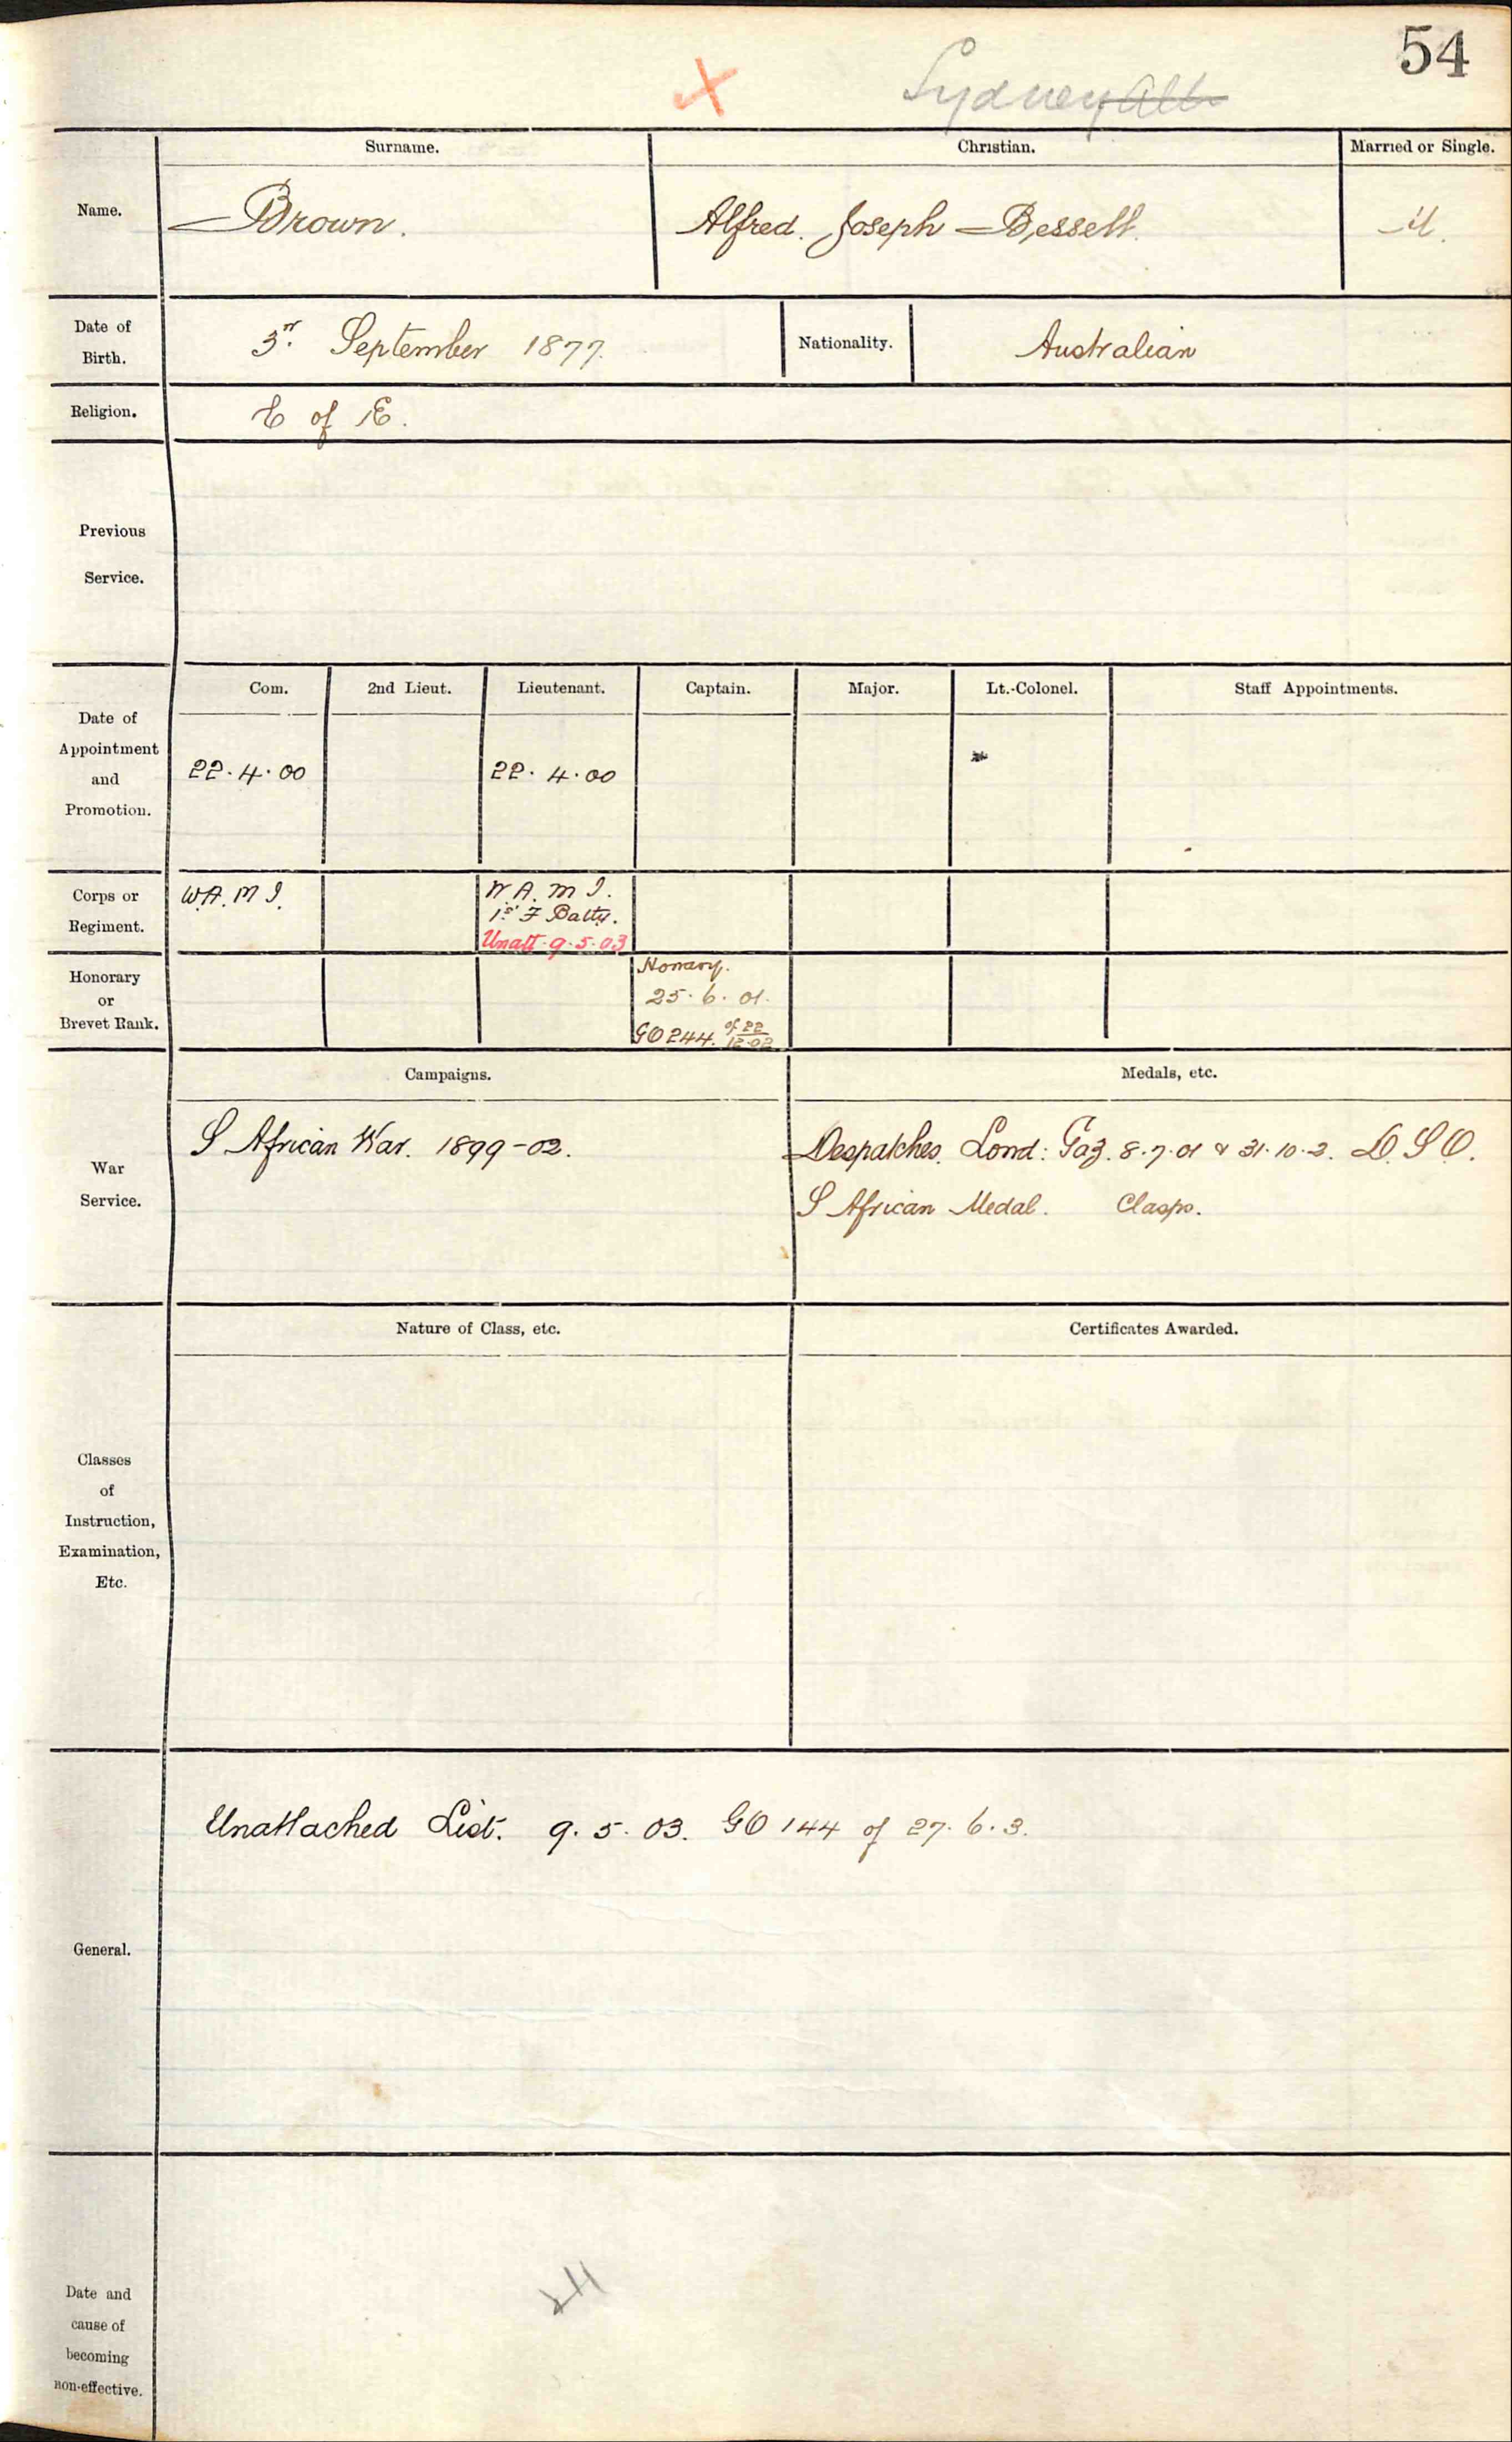 54
Sydney
Surname.
Christian.
Married or Single.
Name.
Brown.
Alfred. Joseph Bessell.
M.
Date of
Birth.
3r. September 1877.
Nationality.
Australian
Religion.
C of E.
Previous
Service.
Com.
2nd Lieut.
Lieutenant.
Captain.
Major.
Lt.-Colonel.
Staff Appointments.
Date of
Appointment
and
Promotion.
22.4.00
22.4.00
Corps or
Regiment.
W.A.M I.
W.A.M I.
1st F Batty.
Unatt. 9.5.03
Honorary
or
Brevet Rank.
Honary.
25.6.01.
GO 244. of 22
12.02
War
Service.
Campaigns.
Medals, etc.
S African War. 1899-02.
Despatches. Lond: Gaz. 8.7.01 & 31.10.2. D.S.O.
S African Medal. Clasps.
Classes
of
Instruction,
Examination,
Etc.
Nature of Class, etc.
Certificates Awarded.
General.
Unattached List. 9.5.03. GO 144 of 27.6.3.
Date and
cause of
becoming
non-effective.